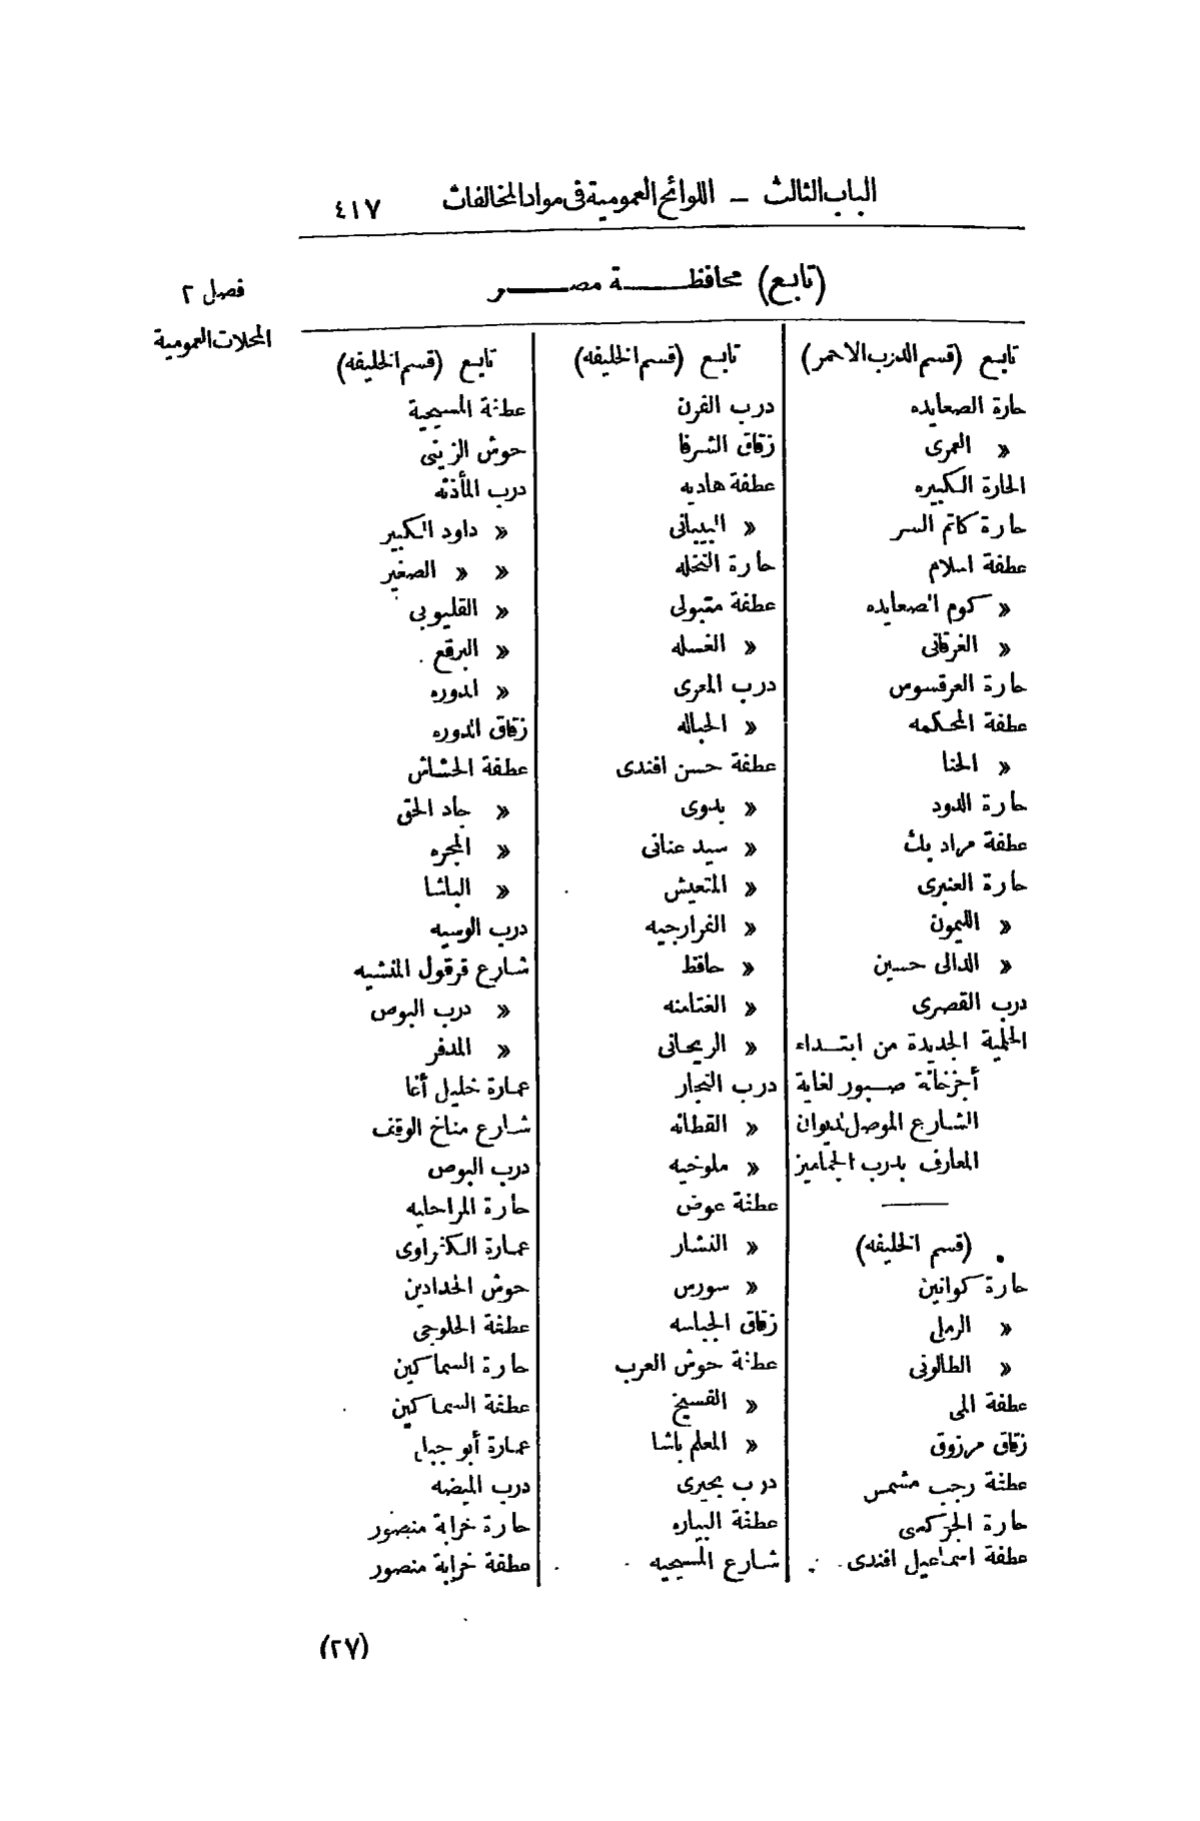 الباب الثالث — اللوائح العمومية فى مواد المخالفات ٤١٧
فصل ٢
المحلات العمومية
(تابع) محافظة مصر
تابع (قسم الدرب الاحمر)
حارة الصعايده
» العمرى
الحارة الكبيره
حارة كاتم السر
عطفة اسلام
» كوم الصعايده
» الغرقانى
حارة العرقسوس
عطفة المحكمه
» الحنا
حارة الدود
عطفة مراد بك
حارة العنبرى
» الليمون
» الدالى حسين
درب القصرى
الحلمية الجديدة من ابتداء
أجزخانة صبور لغاية
الشارع الموصل لديوان
المعارف بدرب الجماميز
(قسم الخليفه)
حارة كوانين
» الرملى
» الطالونى
عطفة المى
زقاق مرزوق
عطفة رجب مشمس
حارة الجركسى
عطفة اسماعيل افندى
تابع (قسم الخليفه)
درب الفرن
زقاق الشرفا
عطفة هاديه
» الببيانى
حارة النخله
عطفة متبولى
» الغسله
درب المعرى
» الحباله
عطفة حسن افندى
» بدوى
» سيد عنانى
» المتعيش
» الفرارجيه
» حافظ
» الغتامنه
» الريحانى
درب النجار
» القطانه
» ملوخيه
عطفة عوض
» النشار
» سورس
زقاق الجباسه
عطفة حوش العرب
» الفسيخ
» المعلم باشا
درب بحيرى
عطفة البياره
شارع المسيحيه
تابع (قسم الخليفه)
عطفة المسيحية
حوش الزينى
درب المأذنه
» داود الكبير
» » الصغير
» القليوبى
» البرقع
» المدوره
زقاق المدوره
عطفة الحشاش
» جاد الحق
» المجره
» الباشا
درب الوسيه
شارع قرقول المنشيه
» درب البوص
» المدفر
عمارة خليل أغا
شارع مناخ الوقف
درب البوص
حارة المراحليه
عمارة الكفراوى
حوش الحدادين
عطفة الحلوجى
حارة السماكين
عطفة السماكين
عمارة أبو جبل
درب الميضه
حارة خرابة منصور
عطفة خرابة منصور
(٢٧)